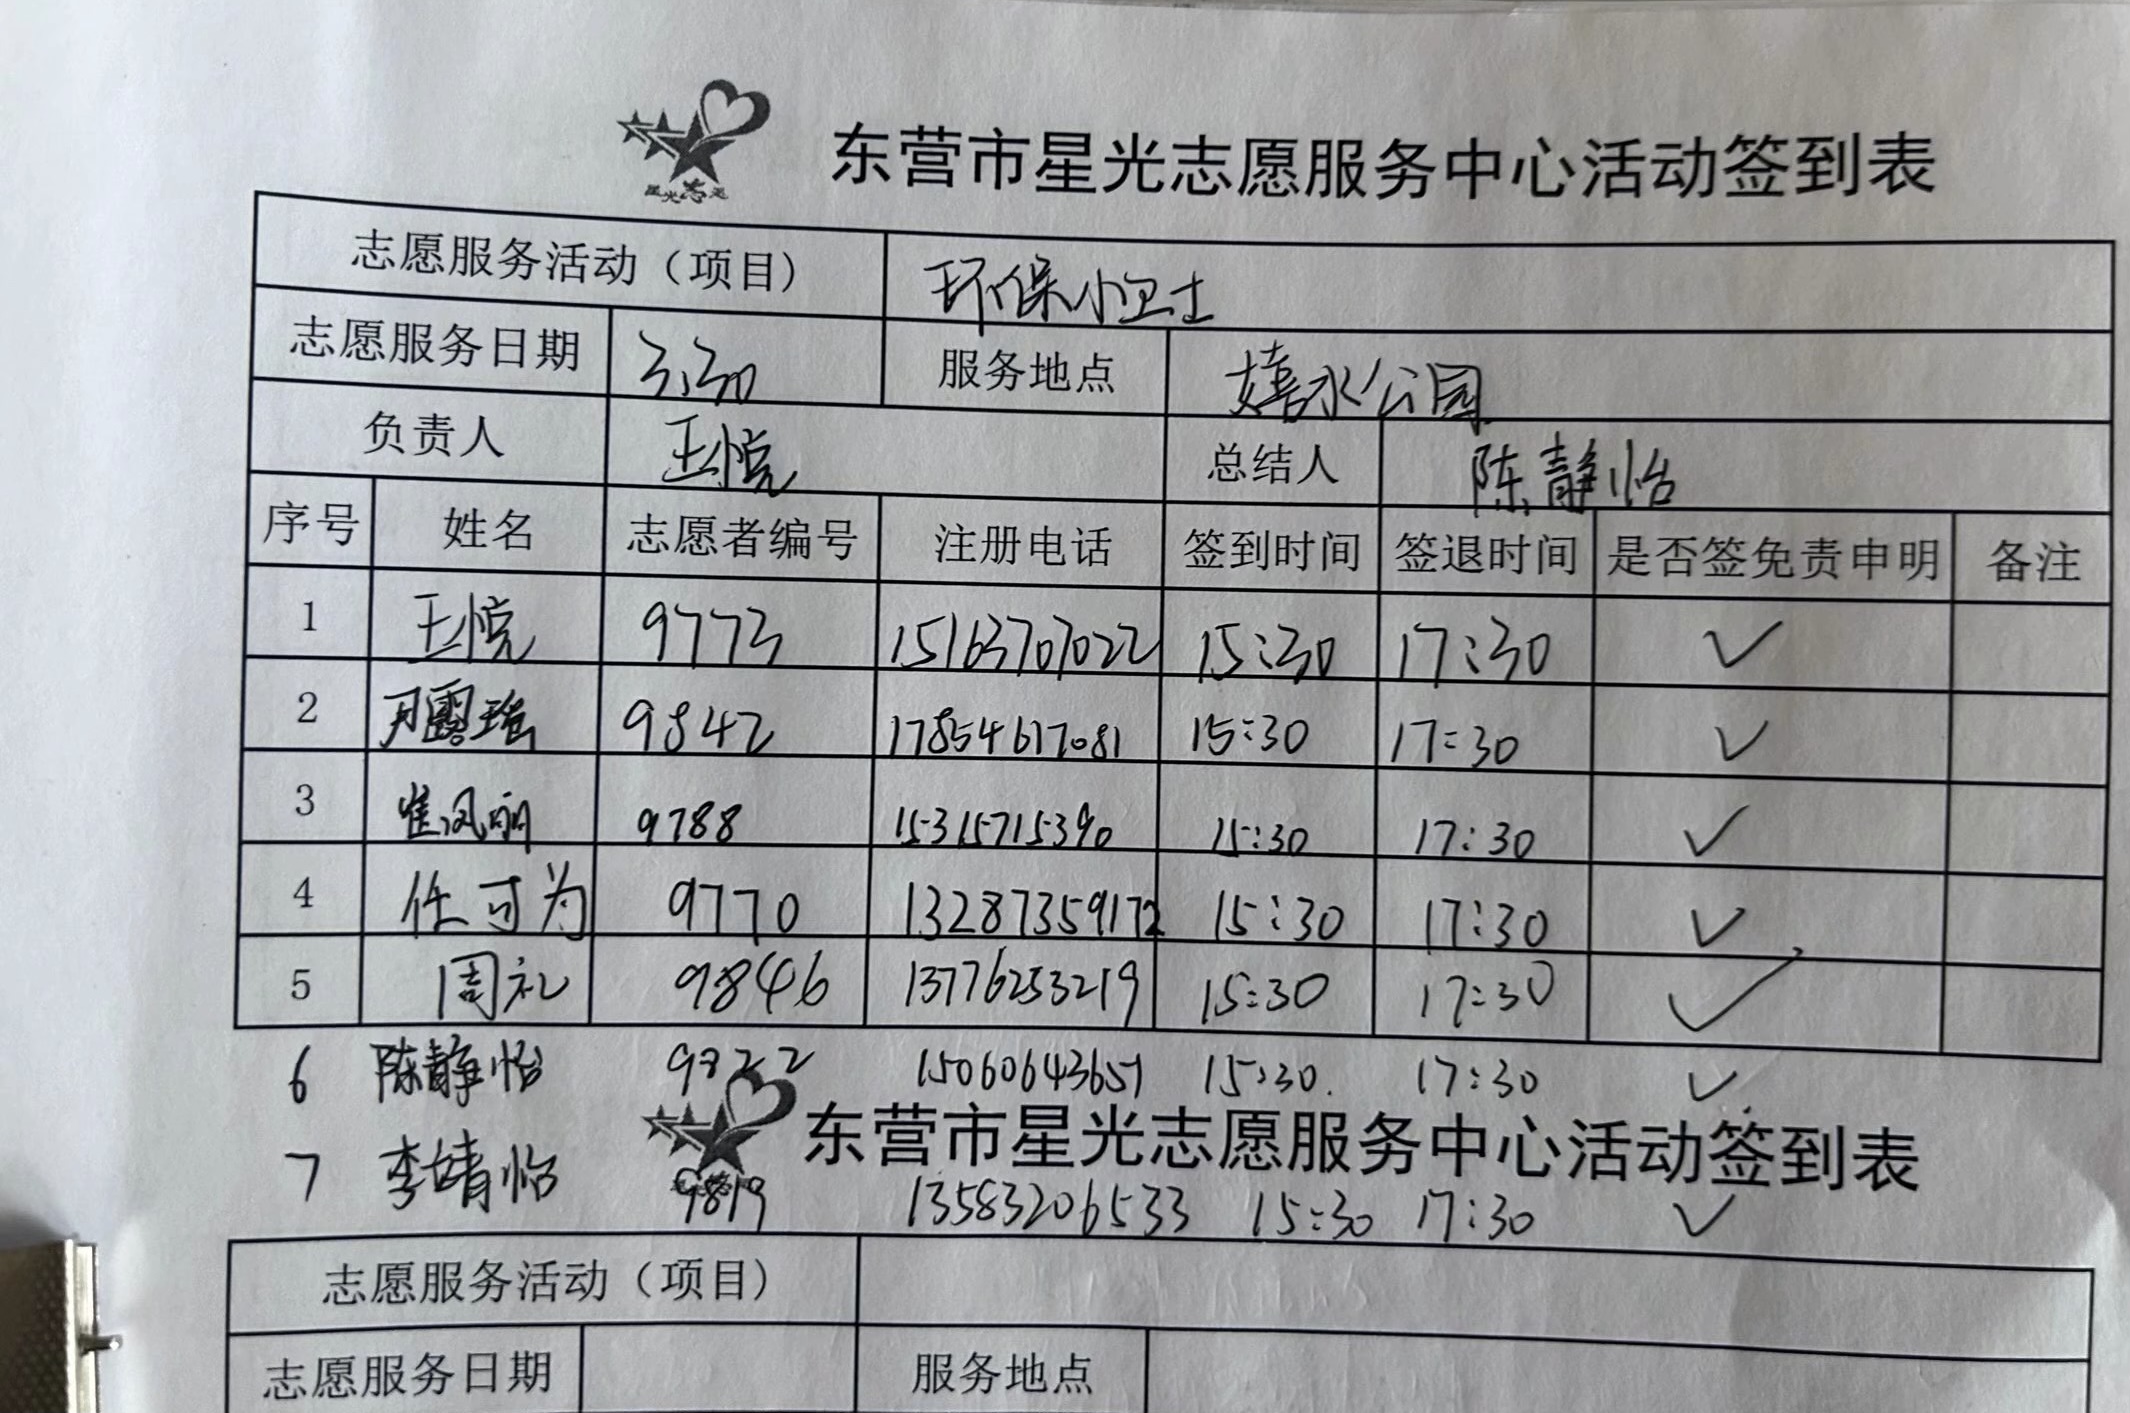 星光志愿
东营市星光志愿服务中心活动签到表
志愿服务活动（项目） 环保小卫士
志愿服务日期 3.30 服务地点 嬉水公园
负责人 王悦 总结人 陈静怡
序号 姓名 志愿者编号 注册电话 签到时间 签退时间 是否签免责申明 备注
1 王悦 9773 15163707022 15:30 17:30 ✓
2 刁露瑶 9842 17854617081 15:30 17:30 ✓
3 崔凤丽 9788 15315715390 15:30 17:30 ✓
4 任可为 9770 13287359172 15:30 17:30 ✓
5 周礼 9846 13776253219 15:30 17:30 ✓
6 陈静怡 15060643651 15:30 17:30 ✓
东营市星光志愿服务中心活动签到表
7 李婧怡 9819 13583206533 15:30 17:30 ✓
志愿服务活动（项目）
志愿服务日期 服务地点